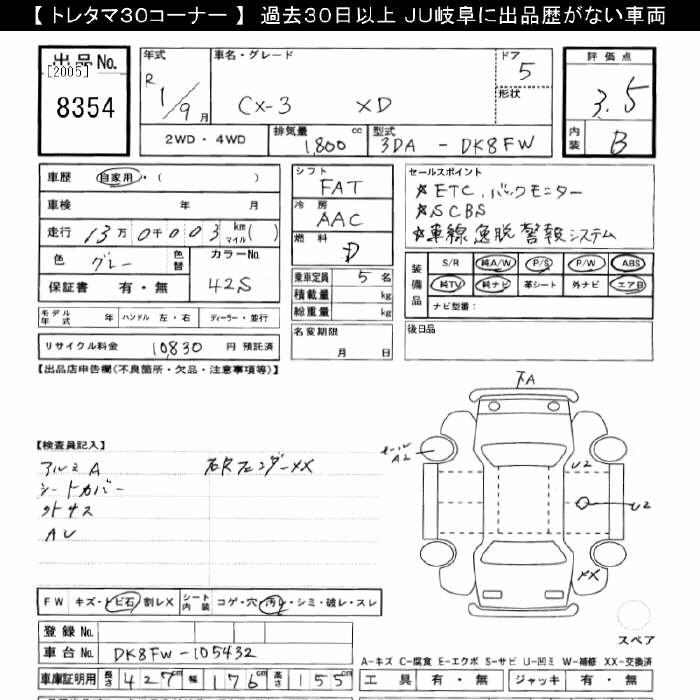 【 トレタマ30コーナー 】 過去30日以上 JU岐阜に出品歴がない車両
出品No.
[2005]
8354
年式 車名・グレード ドア 5
R 1/9月 CX-3 XD 形状
2WD・4WD 排気量 1,800cc 型式 3DA - DK8FW
評価点
3.5
内装 B
車歴 自家用・( )
車検 年 月
走行 13万0千003 km マイル( )
色 グレー 色替 カラーNo. 42S
保証書 有・無
モデル年式 年 ハンドル 左・右 ディーラー・並行
リサイクル料金 10,830 円 預託済
シフト FAT
冷房 AAC
燃料 D
乗車定員 5 名
積載量 kg
総重量 kg
名変期限
月 日
セールスポイント
☆ETC、バックモニター
☆SCBS
☆車線逸脱警報システム
装備品 S/R 純A/W P/S P/W ABS
純TV 純ナビ 革シート 外ナビ エアB
ナビ型番:
後日品
【出品店申告欄(不良箇所・欠品・注意事項等)】
下A
【検査員記入】
アルミA 右Rフェンダーxx
シートカバー
外キズ
AU
A2
U2
U2
XX
FW キズ・トビ石・割レX シート内装 コゲ・穴・汚レ・シミ・破レ・スレ
登録 No.
車台 No. DK8FW-105432
スペア
A-キズ C-腐食 E-エクボ S-サビ U-凹ミ W-補修 XX-交換済
車庫証明用 長さ 427cm 幅 176cm 高さ 155
工具 有・無 ジャッキ 有・無